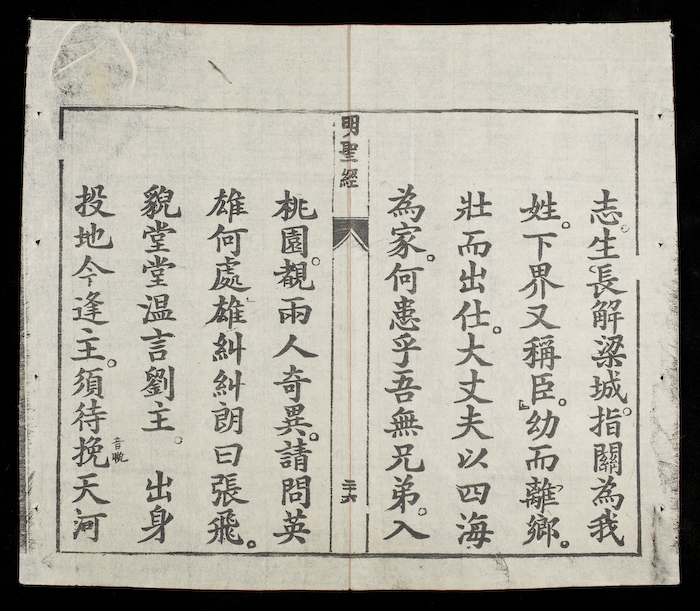 志。生長解梁城。指關為我
姓。下界又稱臣。幼而離鄉。
壯而出仕。大丈夫以四海
為家。何患乎吾無兄弟。入
明聖經
二十六
桃園。覩兩人奇異。請問英
雄何處。雄糾糾朗曰張飛。
貌堂堂温言劉主。 出身
投地今逢主。須待挽音晩天河